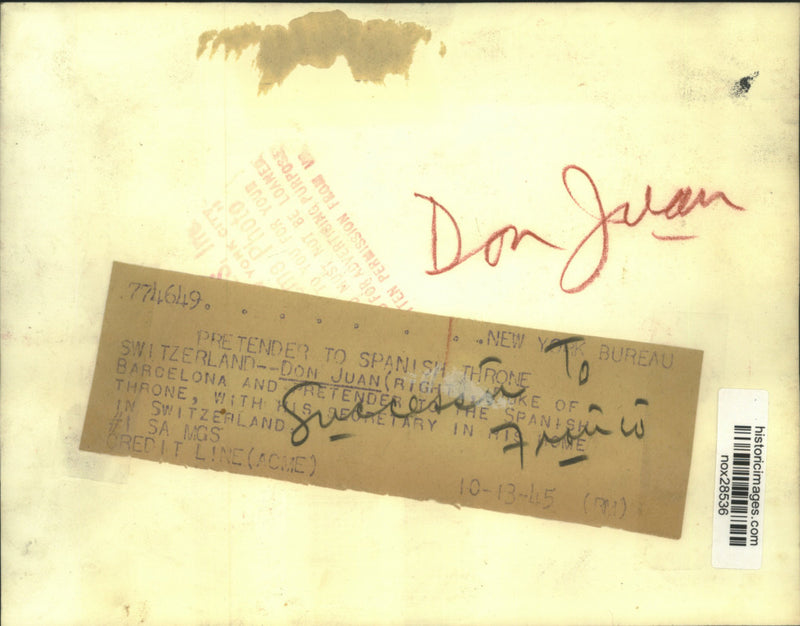 Don Juan
S, Inc.
YORK CITY.
Photo
TO YOU FOR YOUR
MUST NOT BE LOANED
FOR ADVERTISING PURPOSE
TEN PERMISSION FROM US
774649. . . . . . . . .NEW YORK BUREAU
PRETENDER TO SPANISH THRONE
SWITZERLAND--DON JUAN(RIGHT) DUKE OF
BARCELONA AND PRETENDER TO THE SPANISH
THRONE, WITH HIS SECRETARY IN HIS HOME
IN SWITZERLAND.
#1 SA MGS
CREDIT LINE(ACME) 10-13-45
Succession To
Franco
historicimages.com
nox28536